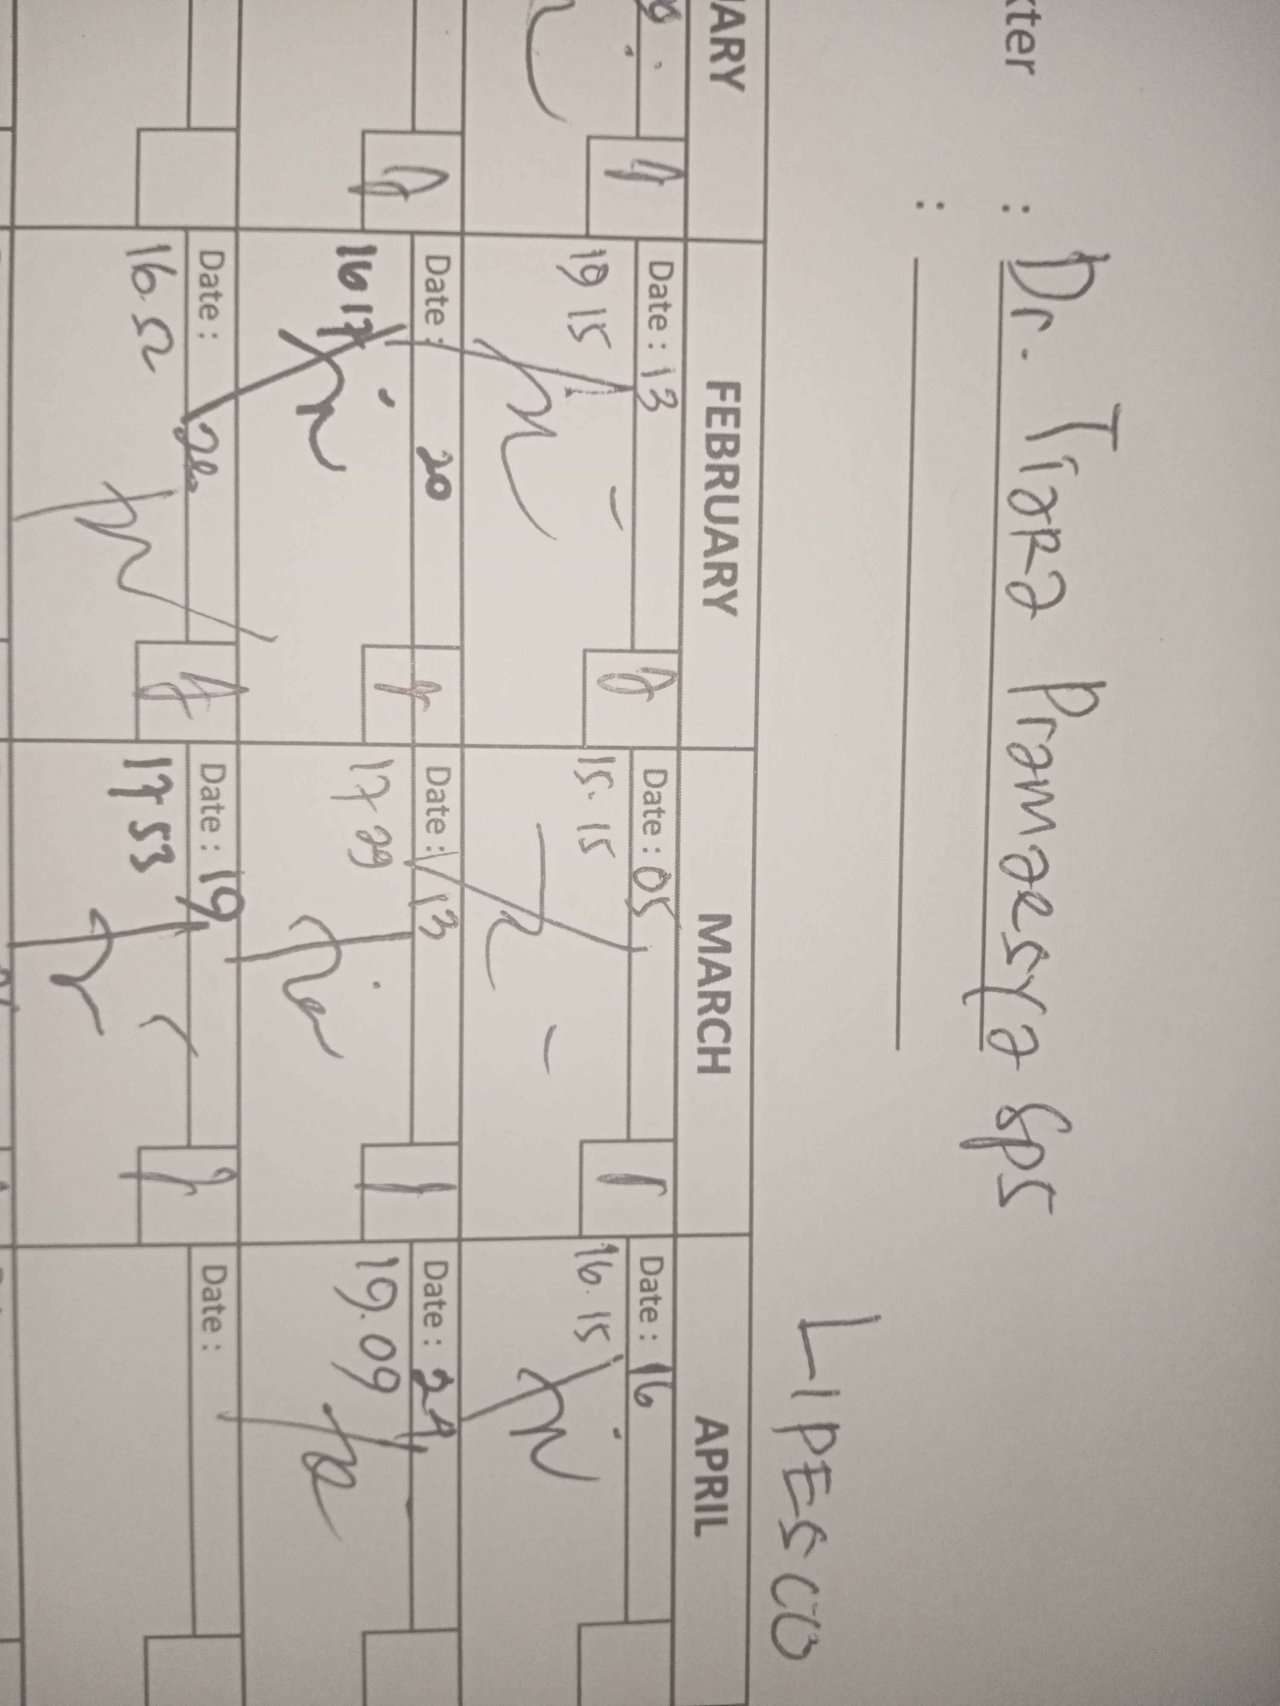 kter : Dr. Tiara Pramaesya Sps
:
LIPESCO
ARY FEBRUARY MARCH APRIL
Date : 13 Date : 05 Date : 16
19 15 15. 15 16. 15
Date : 20 Date : 13 Date : 24
16 17 17 29 19. 09
Date : Date : 19 Date :
16. 52 17 53